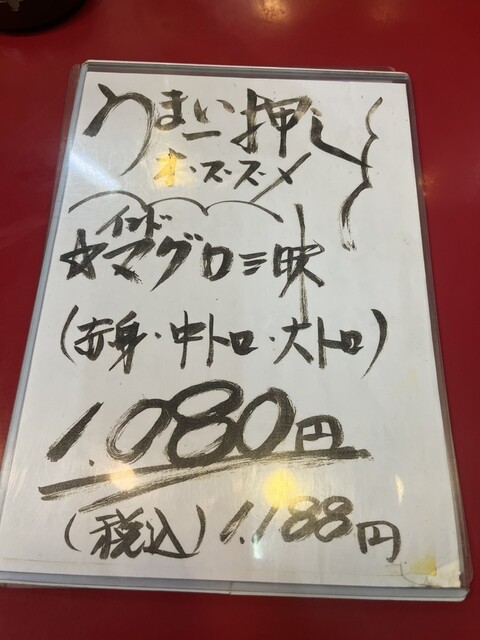 うまい一押し
オススメ
インド
☆マグロ三昧
(赤身・中トロ・大トロ)
1,080円
(税込)1,188円